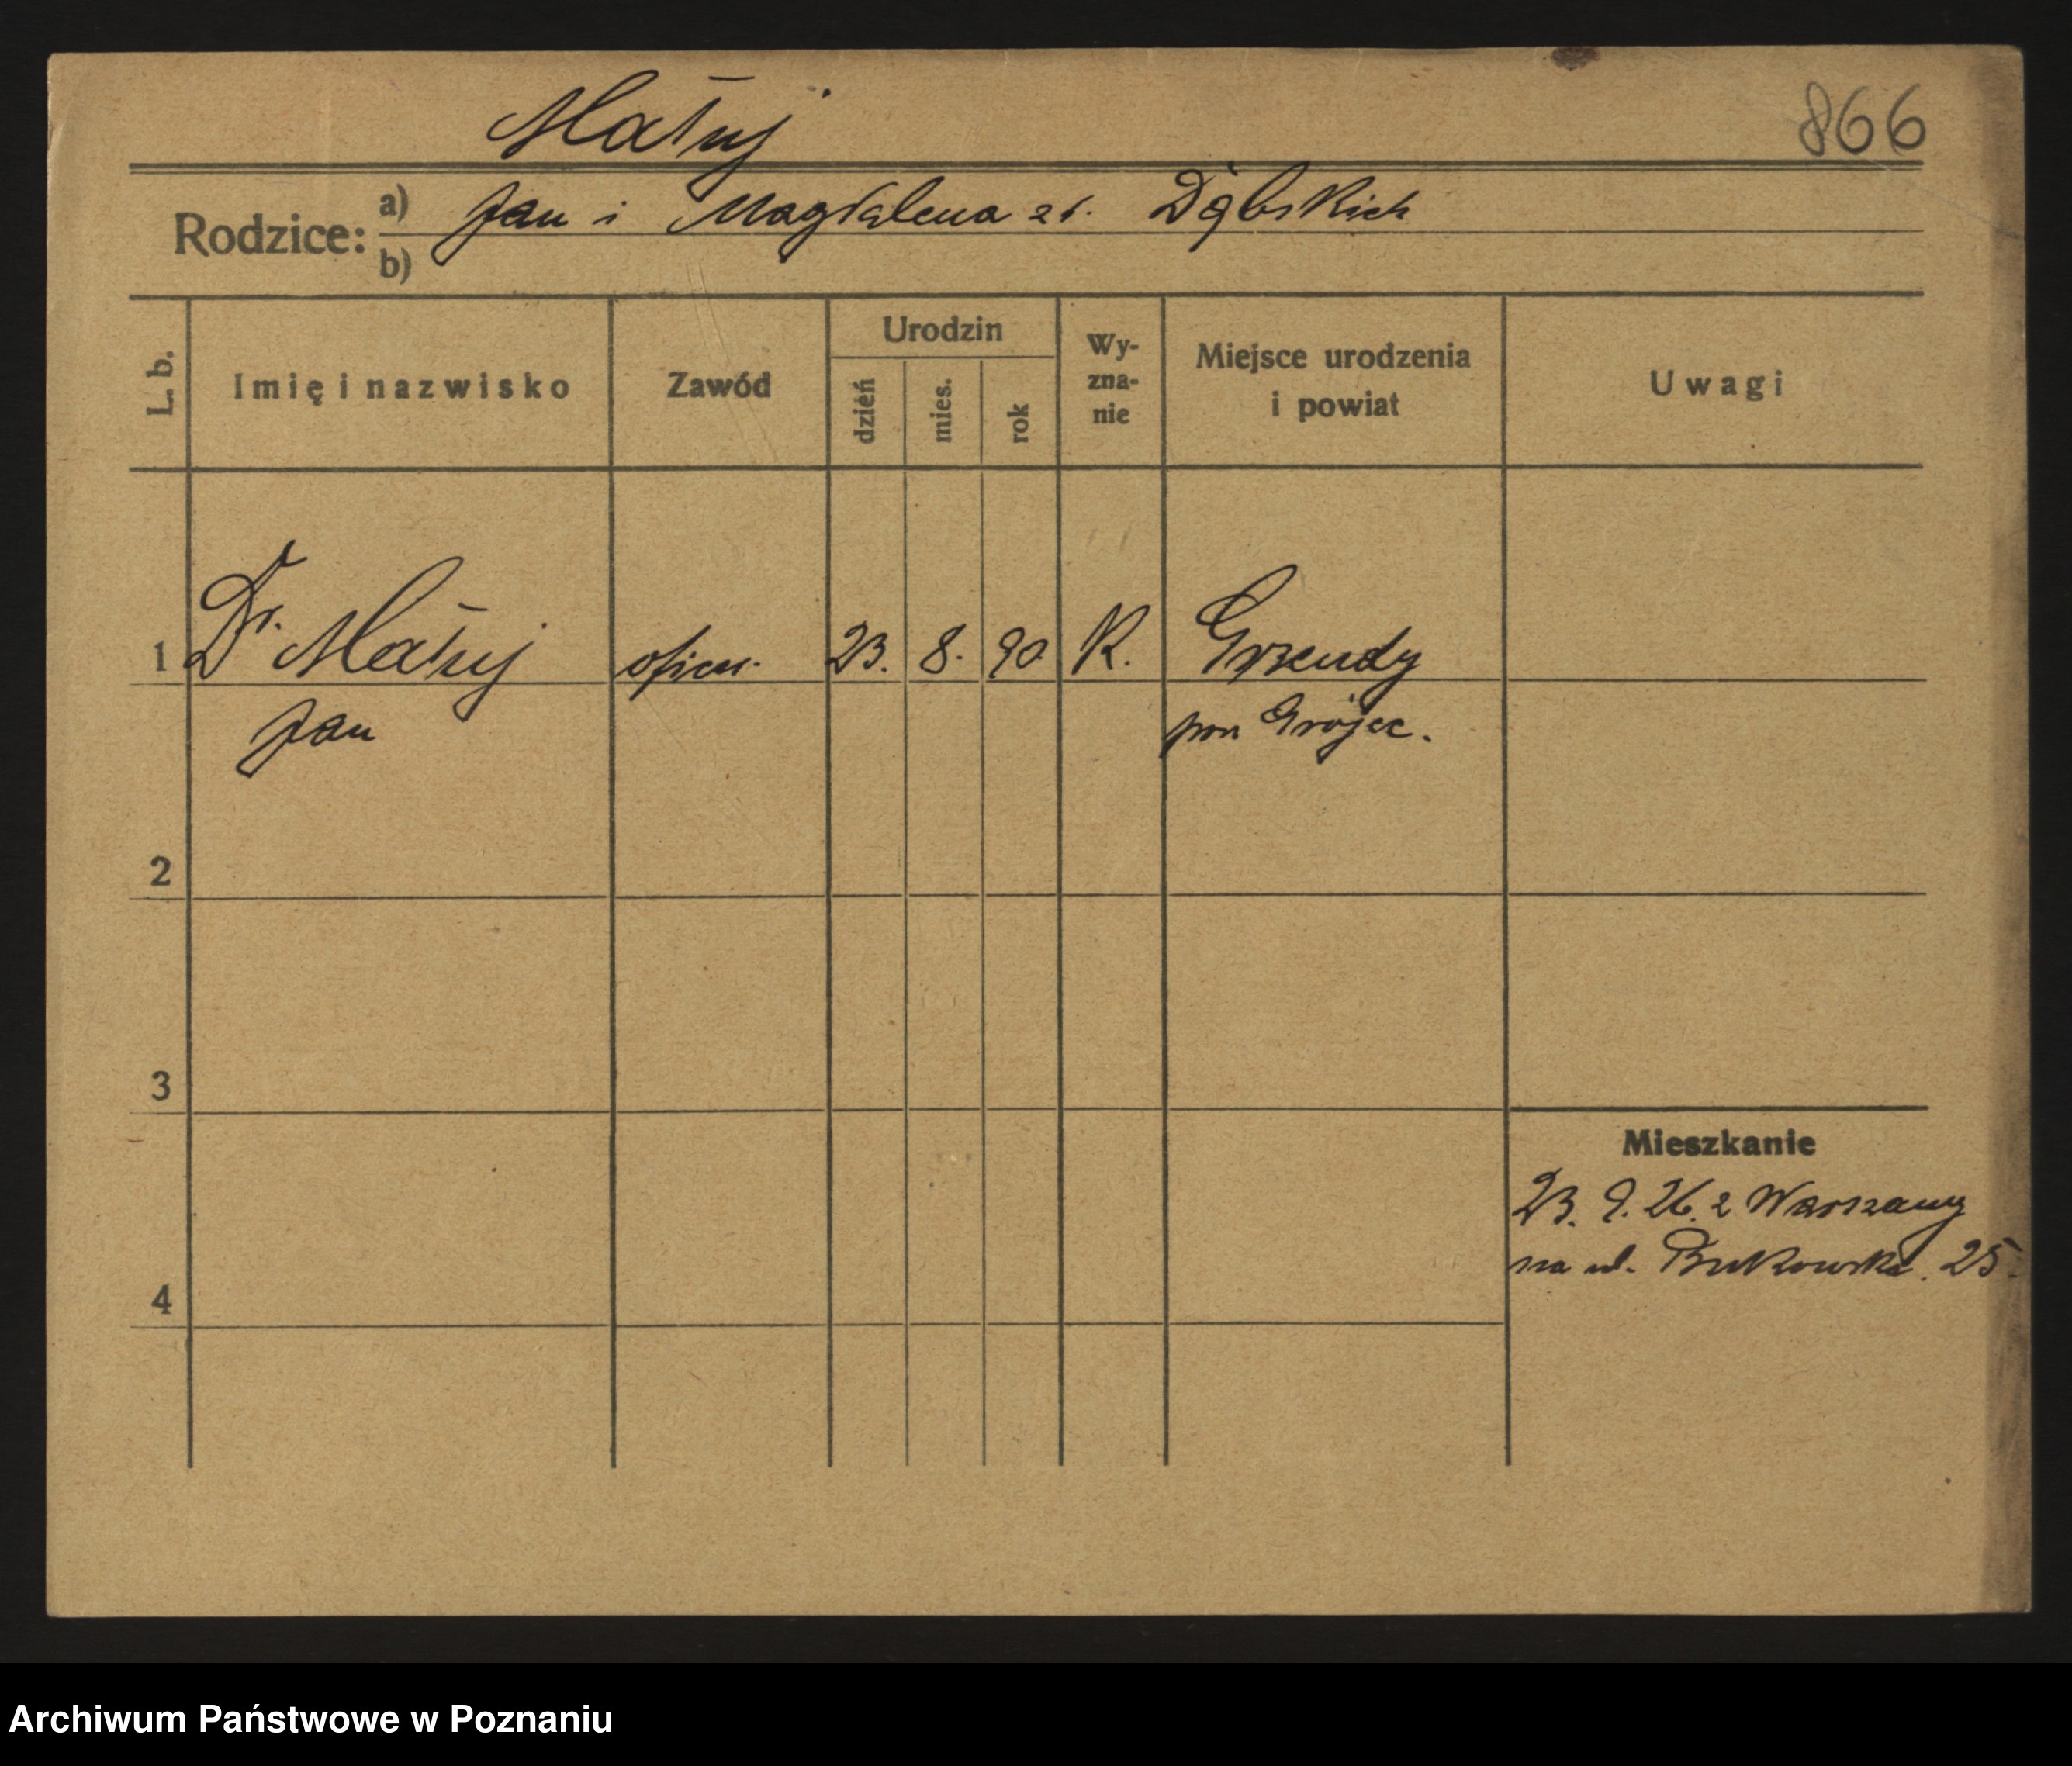 Matuj
866
Rodzice: a) Jan i Magdalena z d. Dąbskich
b)
L. b.
Imię i nazwisko
Zawód
Urodzin
dzień
mies.
rok
Wy-
zna-
nie
Miejsce urodzenia
i powiat
Uwagi
1 Dr. Matuj oficer. 23. 8. 90 K. Grzendy
Jan pow Grójec.
2
3
Mieszkanie
23. 9. 26. z Warszawy
na ul. Bukowska. 25.
4
Archiwum Państwowe w Poznaniu